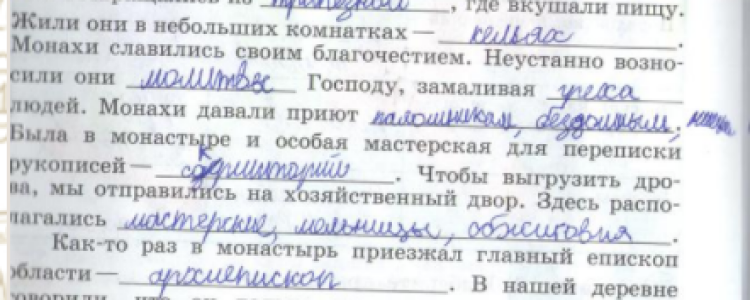 трапезной, где вкушали пищу.
Жили они в небольших комнатках — кельях.
Монахи славились своим благочестием. Неустанно возно-
сили они молитвы Господу, замаливая греха
людей. Монахи давали приют паломникам, бездомным,
Была в монастыре и особая мастерская для переписки
рукописей — скрипторий. Чтобы выгрузить дро-
ва, мы отправились на хозяйственный двор. Здесь распо-
лагались мастерские, мельницы,
Как-то раз в монастырь приезжал главный епископ
области — архиепископ. В нашей деревне